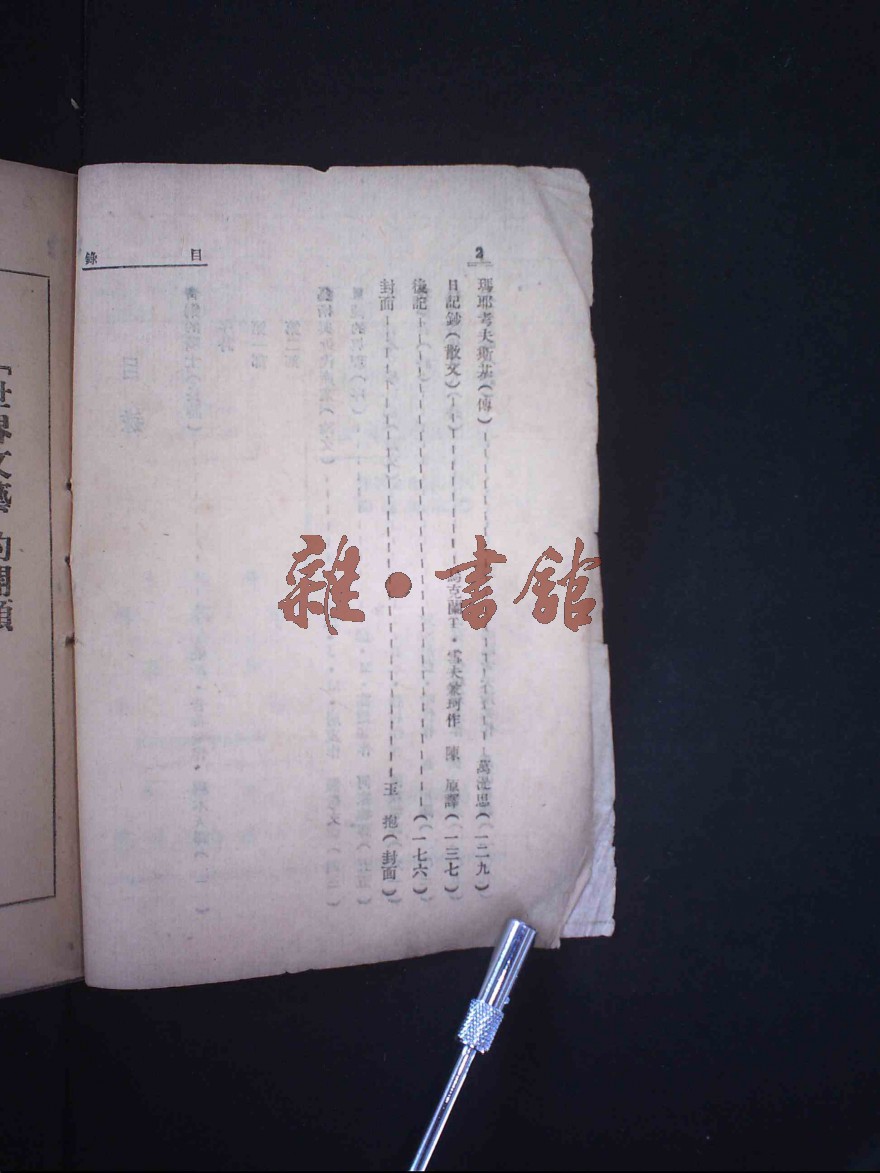 目錄
2
瑪耶考夫斯基(傳)萬湜思(一二九)
日記鈔(散文)烏克蘭T·雪夫兼珂作 陳原譯(一三七)
後記(一七六)
封面(封面)
「世界文藝
雜·書館